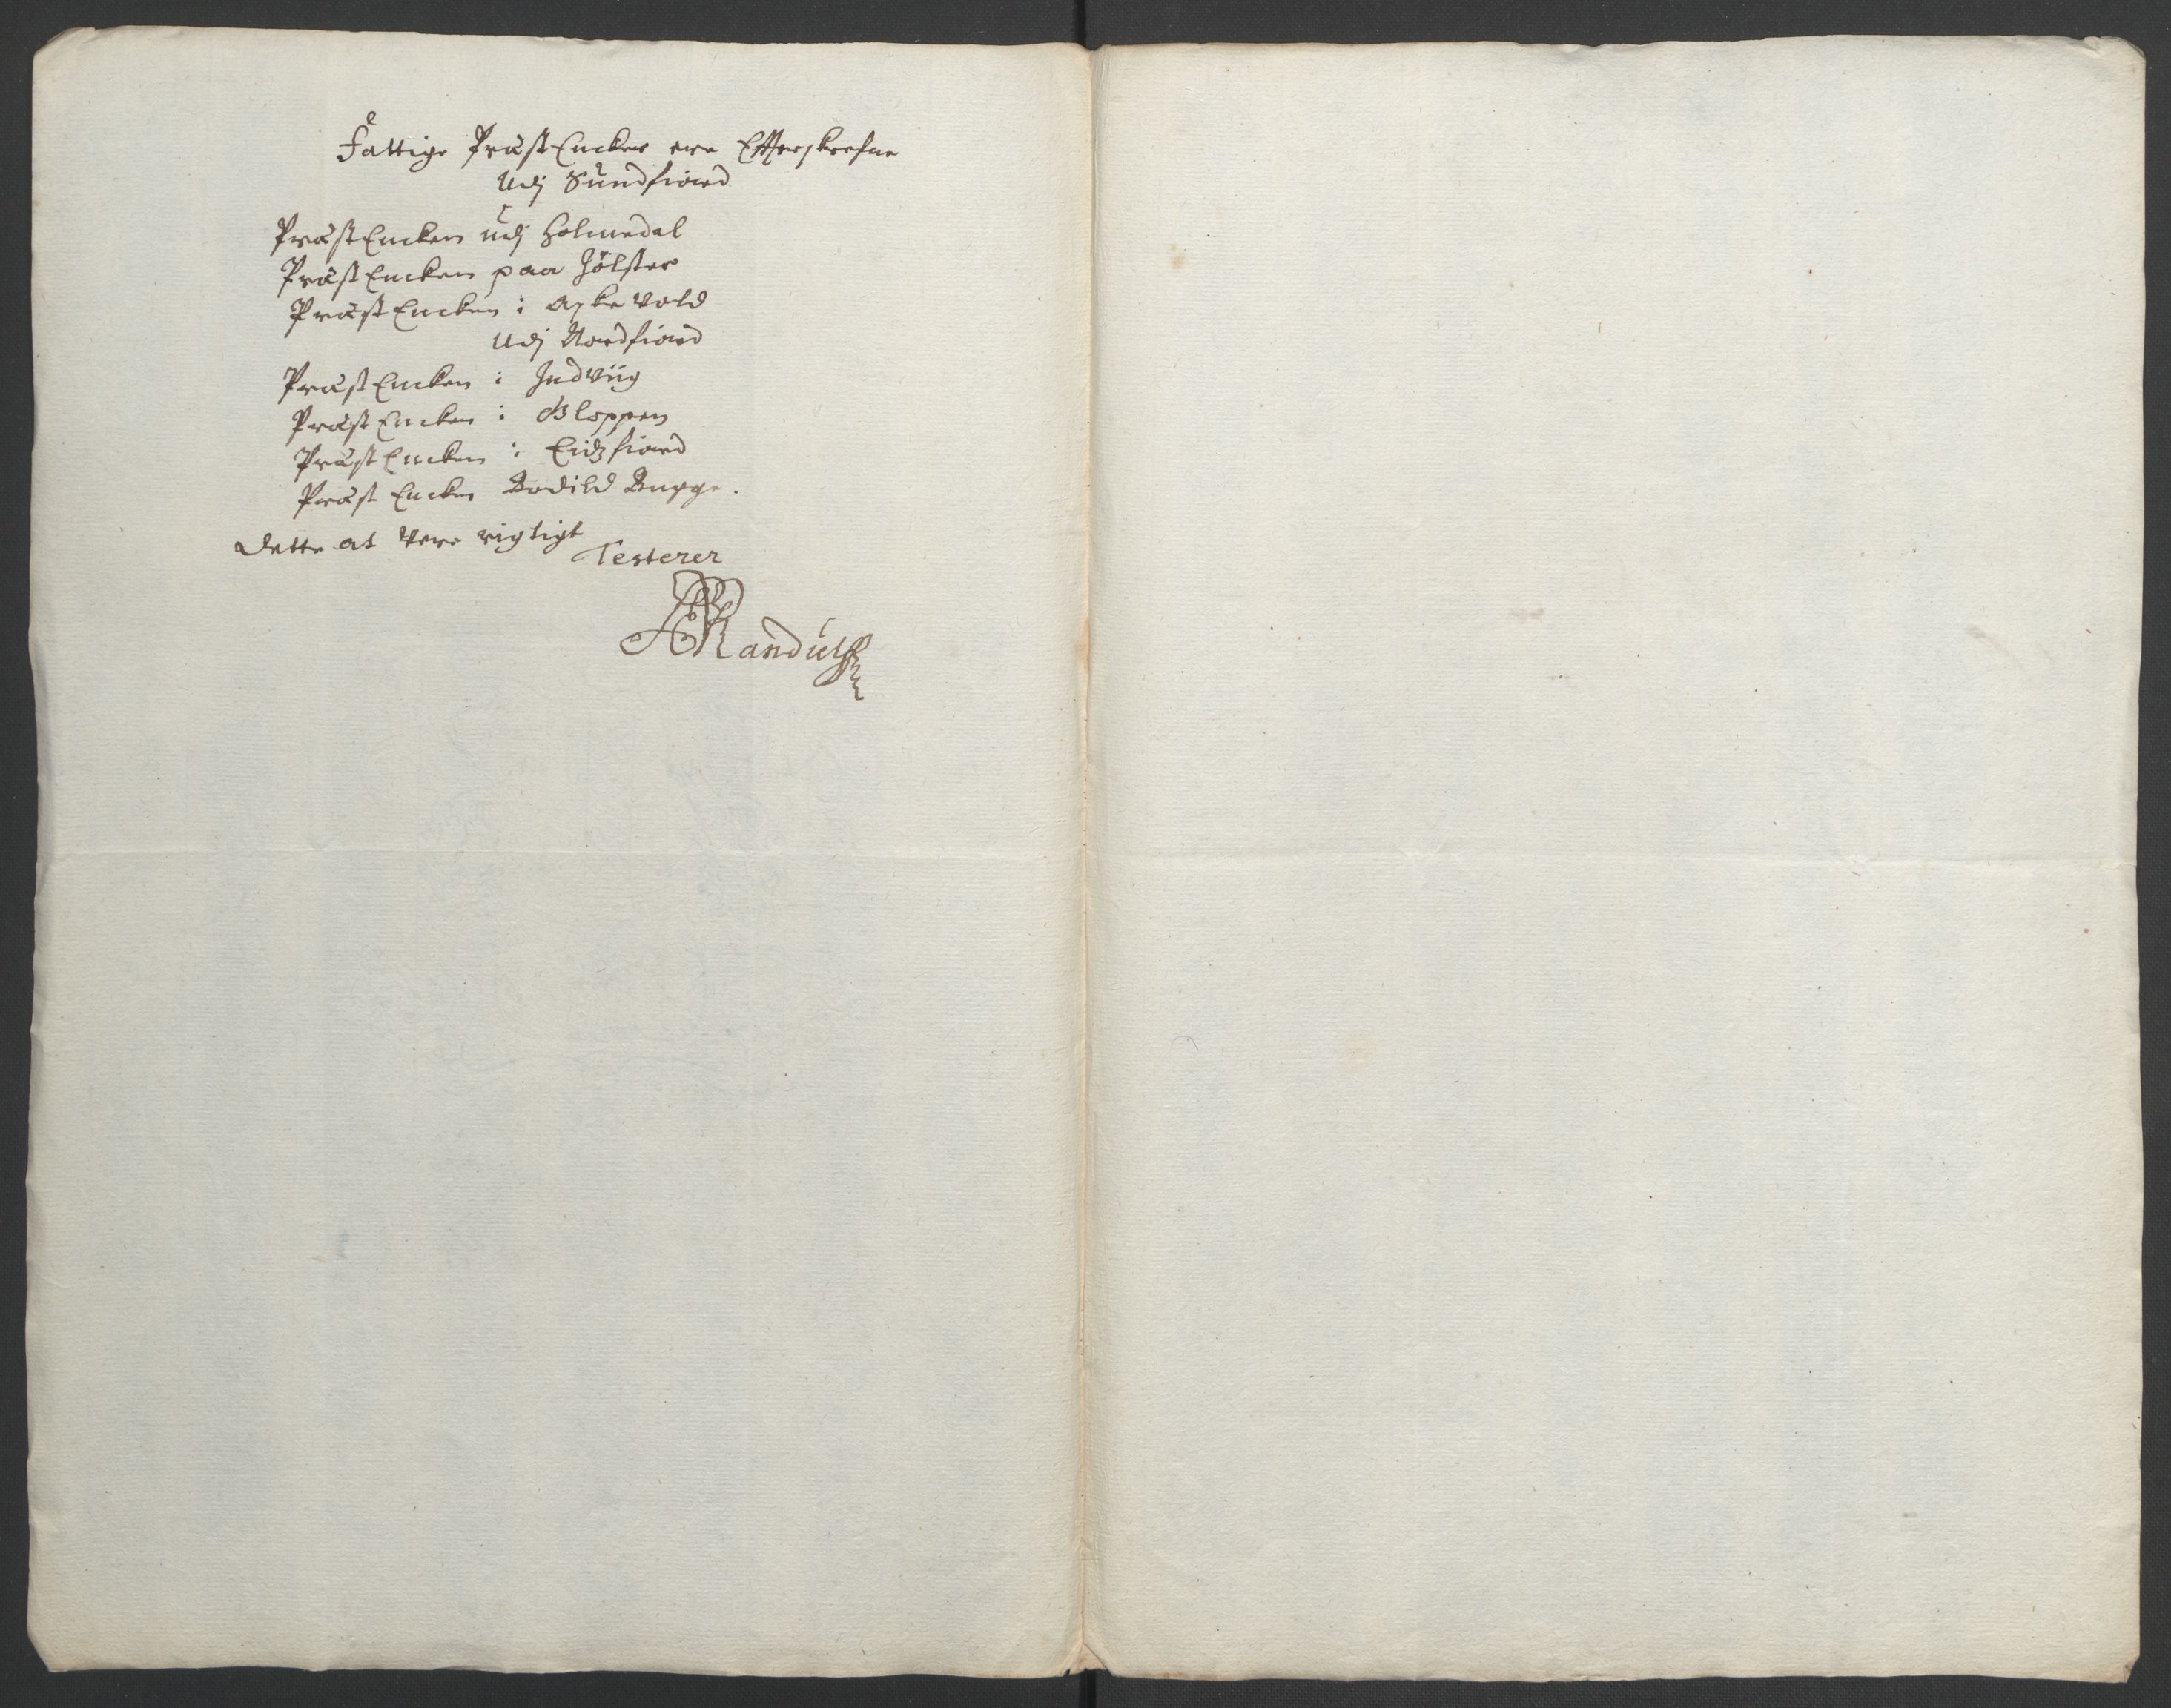 Fattige PræstEncker ere Effterskrefne
Udj Sundfiord
PræstEncken udj Holmedal
PræstEncken paa Jölster
PræstEncken i Aske Vold
Udj Nordfiord
PræstEncken i Indviig
PræstEncken i Gloppen
PræstEncken i Eidzfiord
Præst Encken Bodild Bugge.
Dette at Vere rigtigt
Testerer
ARandulff